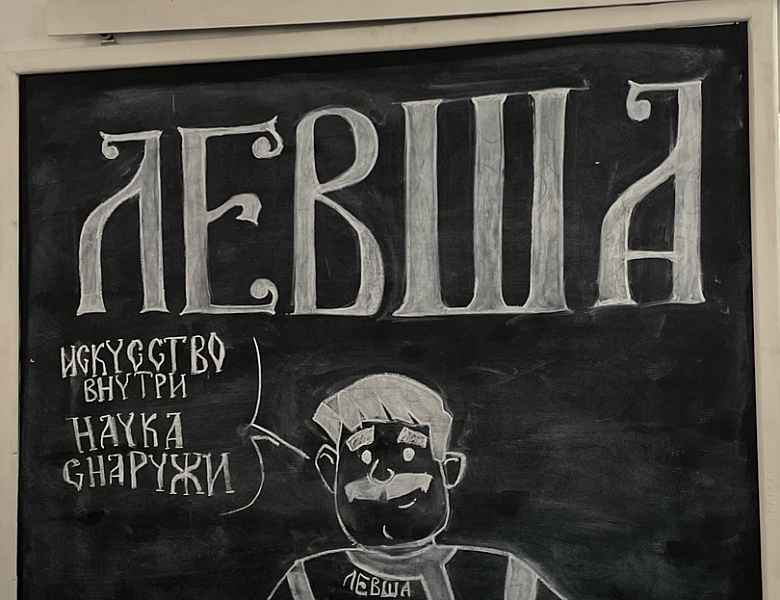 ЛЕВША
ИСКУССТВО
ВНУТРИ
НАУКА
СНАРУЖИ
ЛЕВША